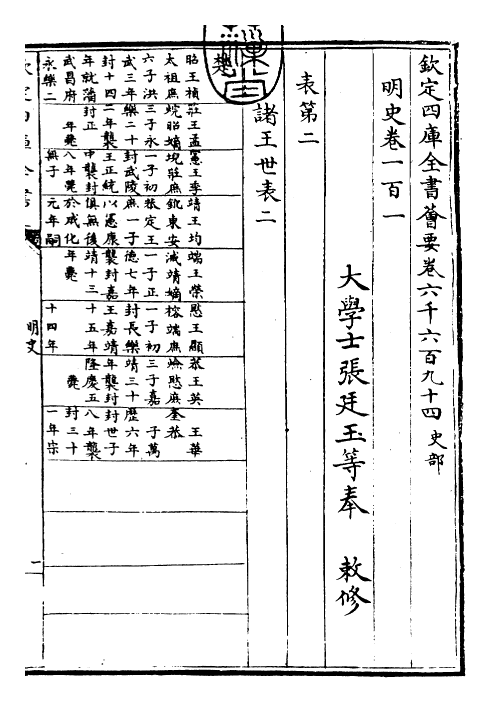 欽定四庫全書薈要卷六千六百九十四 史部
明史卷一百一
大學士張廷玉等奉 敕修
表第二
諸王世表二
楚
昭王楨 莊王孟 憲王季 靖王均 端王榮 愍王顯 恭王英 王華
太祖庶 烷昭嫡 堄莊庶 鈋東安 㳦靖嫡 榕端庶 㷿愍庶 奎恭
六子洪 三子永 一子初 恭定王 一子正 一子初 三子嘉 子萬
武三年 樂二十 封武陵 庶一子 德七年 封長樂 靖三十 歷六年
封十四 二年襲 王正統 以憲康 襲封嘉 王嘉靖 年襲封 封世子
年就藩 封正 中襲封 俱無後 靖十三 十五年 隆慶五 八年襲
武昌府 年薨 八年薨 於成化 年薨 薨 封三十
永樂二 無子 元年嗣 十四年 一年宗
明史
一